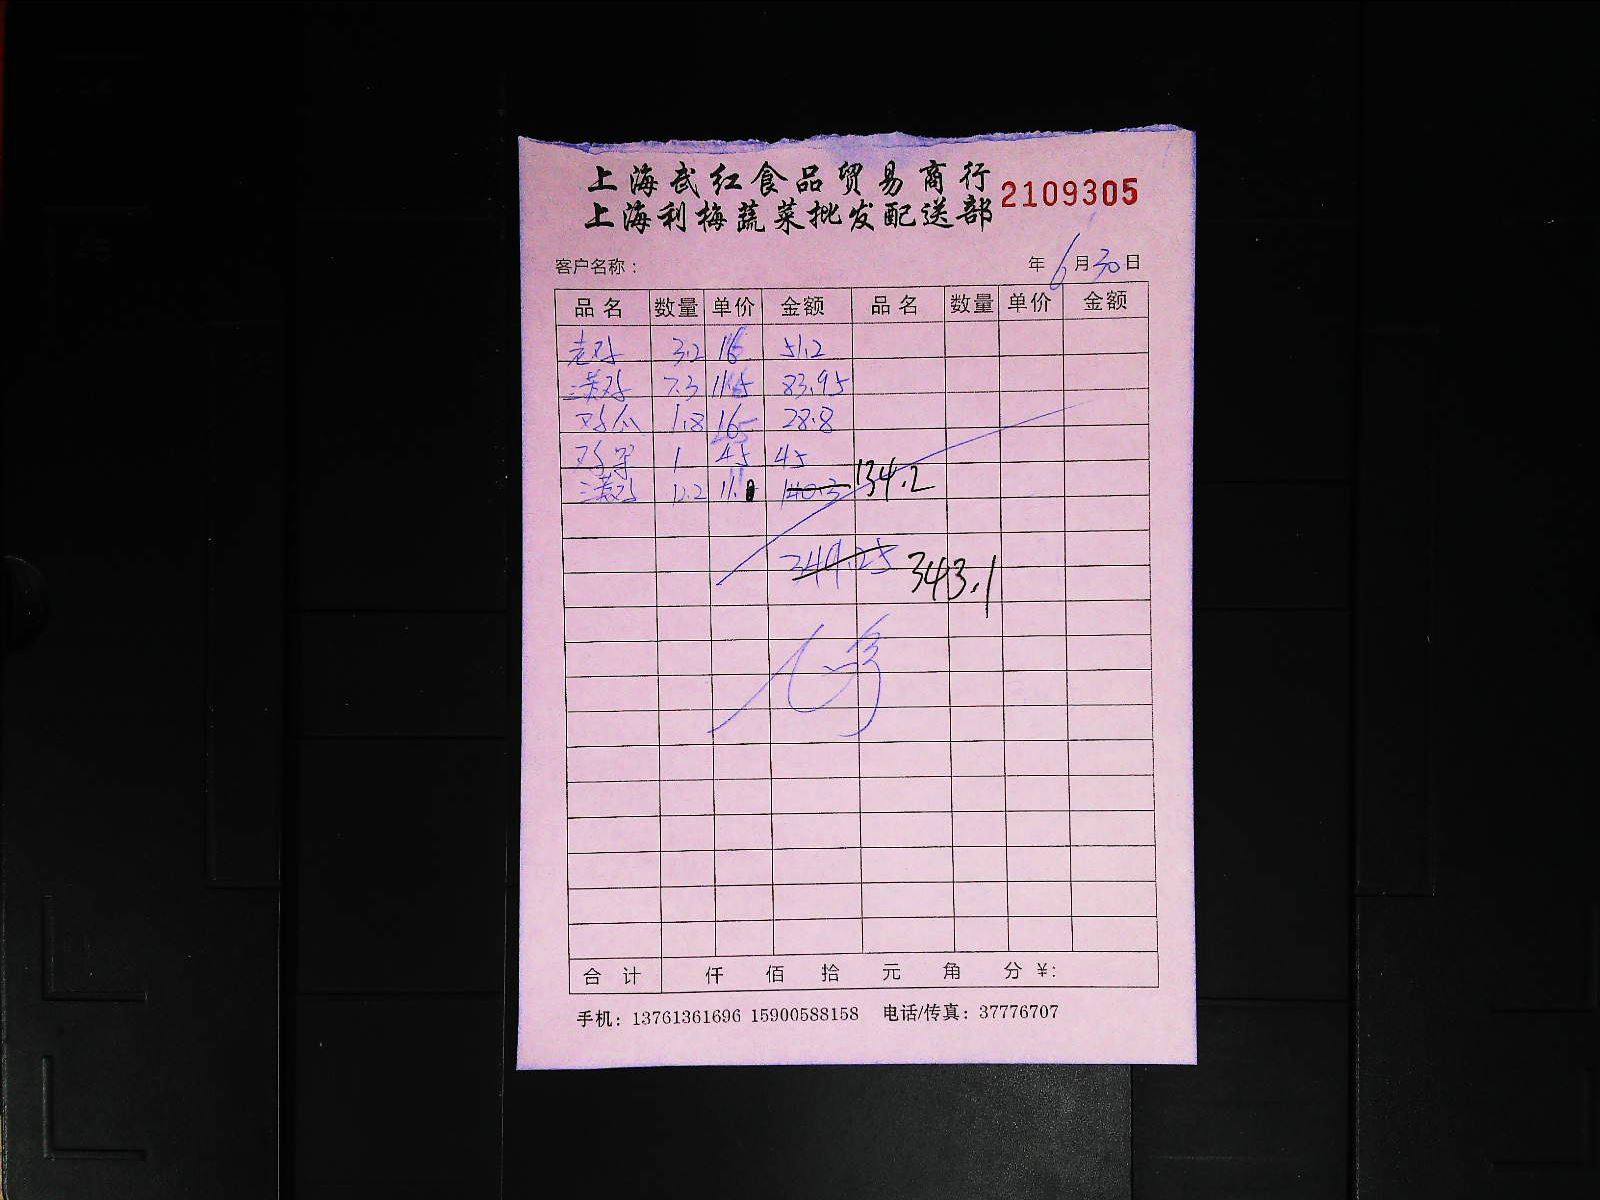 上海武红食品贸易商行
上海利梅蔬菜批发配送部
2109305
客户名称： 年 6 月 30 日
品名 数量 单价 金额 品名 数量 单价 金额
老鸡 3.2 16 51.2
鸡 7.3 11.5 83.95
鸡爪 1.8 16 28.8
鸡 1 45 45
鸡 12.2 11. 140.3 134.2
349.25 343.1
合计 仟 佰 拾 元 角 分 ¥:
手机：13761361696 15900588158 电话/传真：37776707